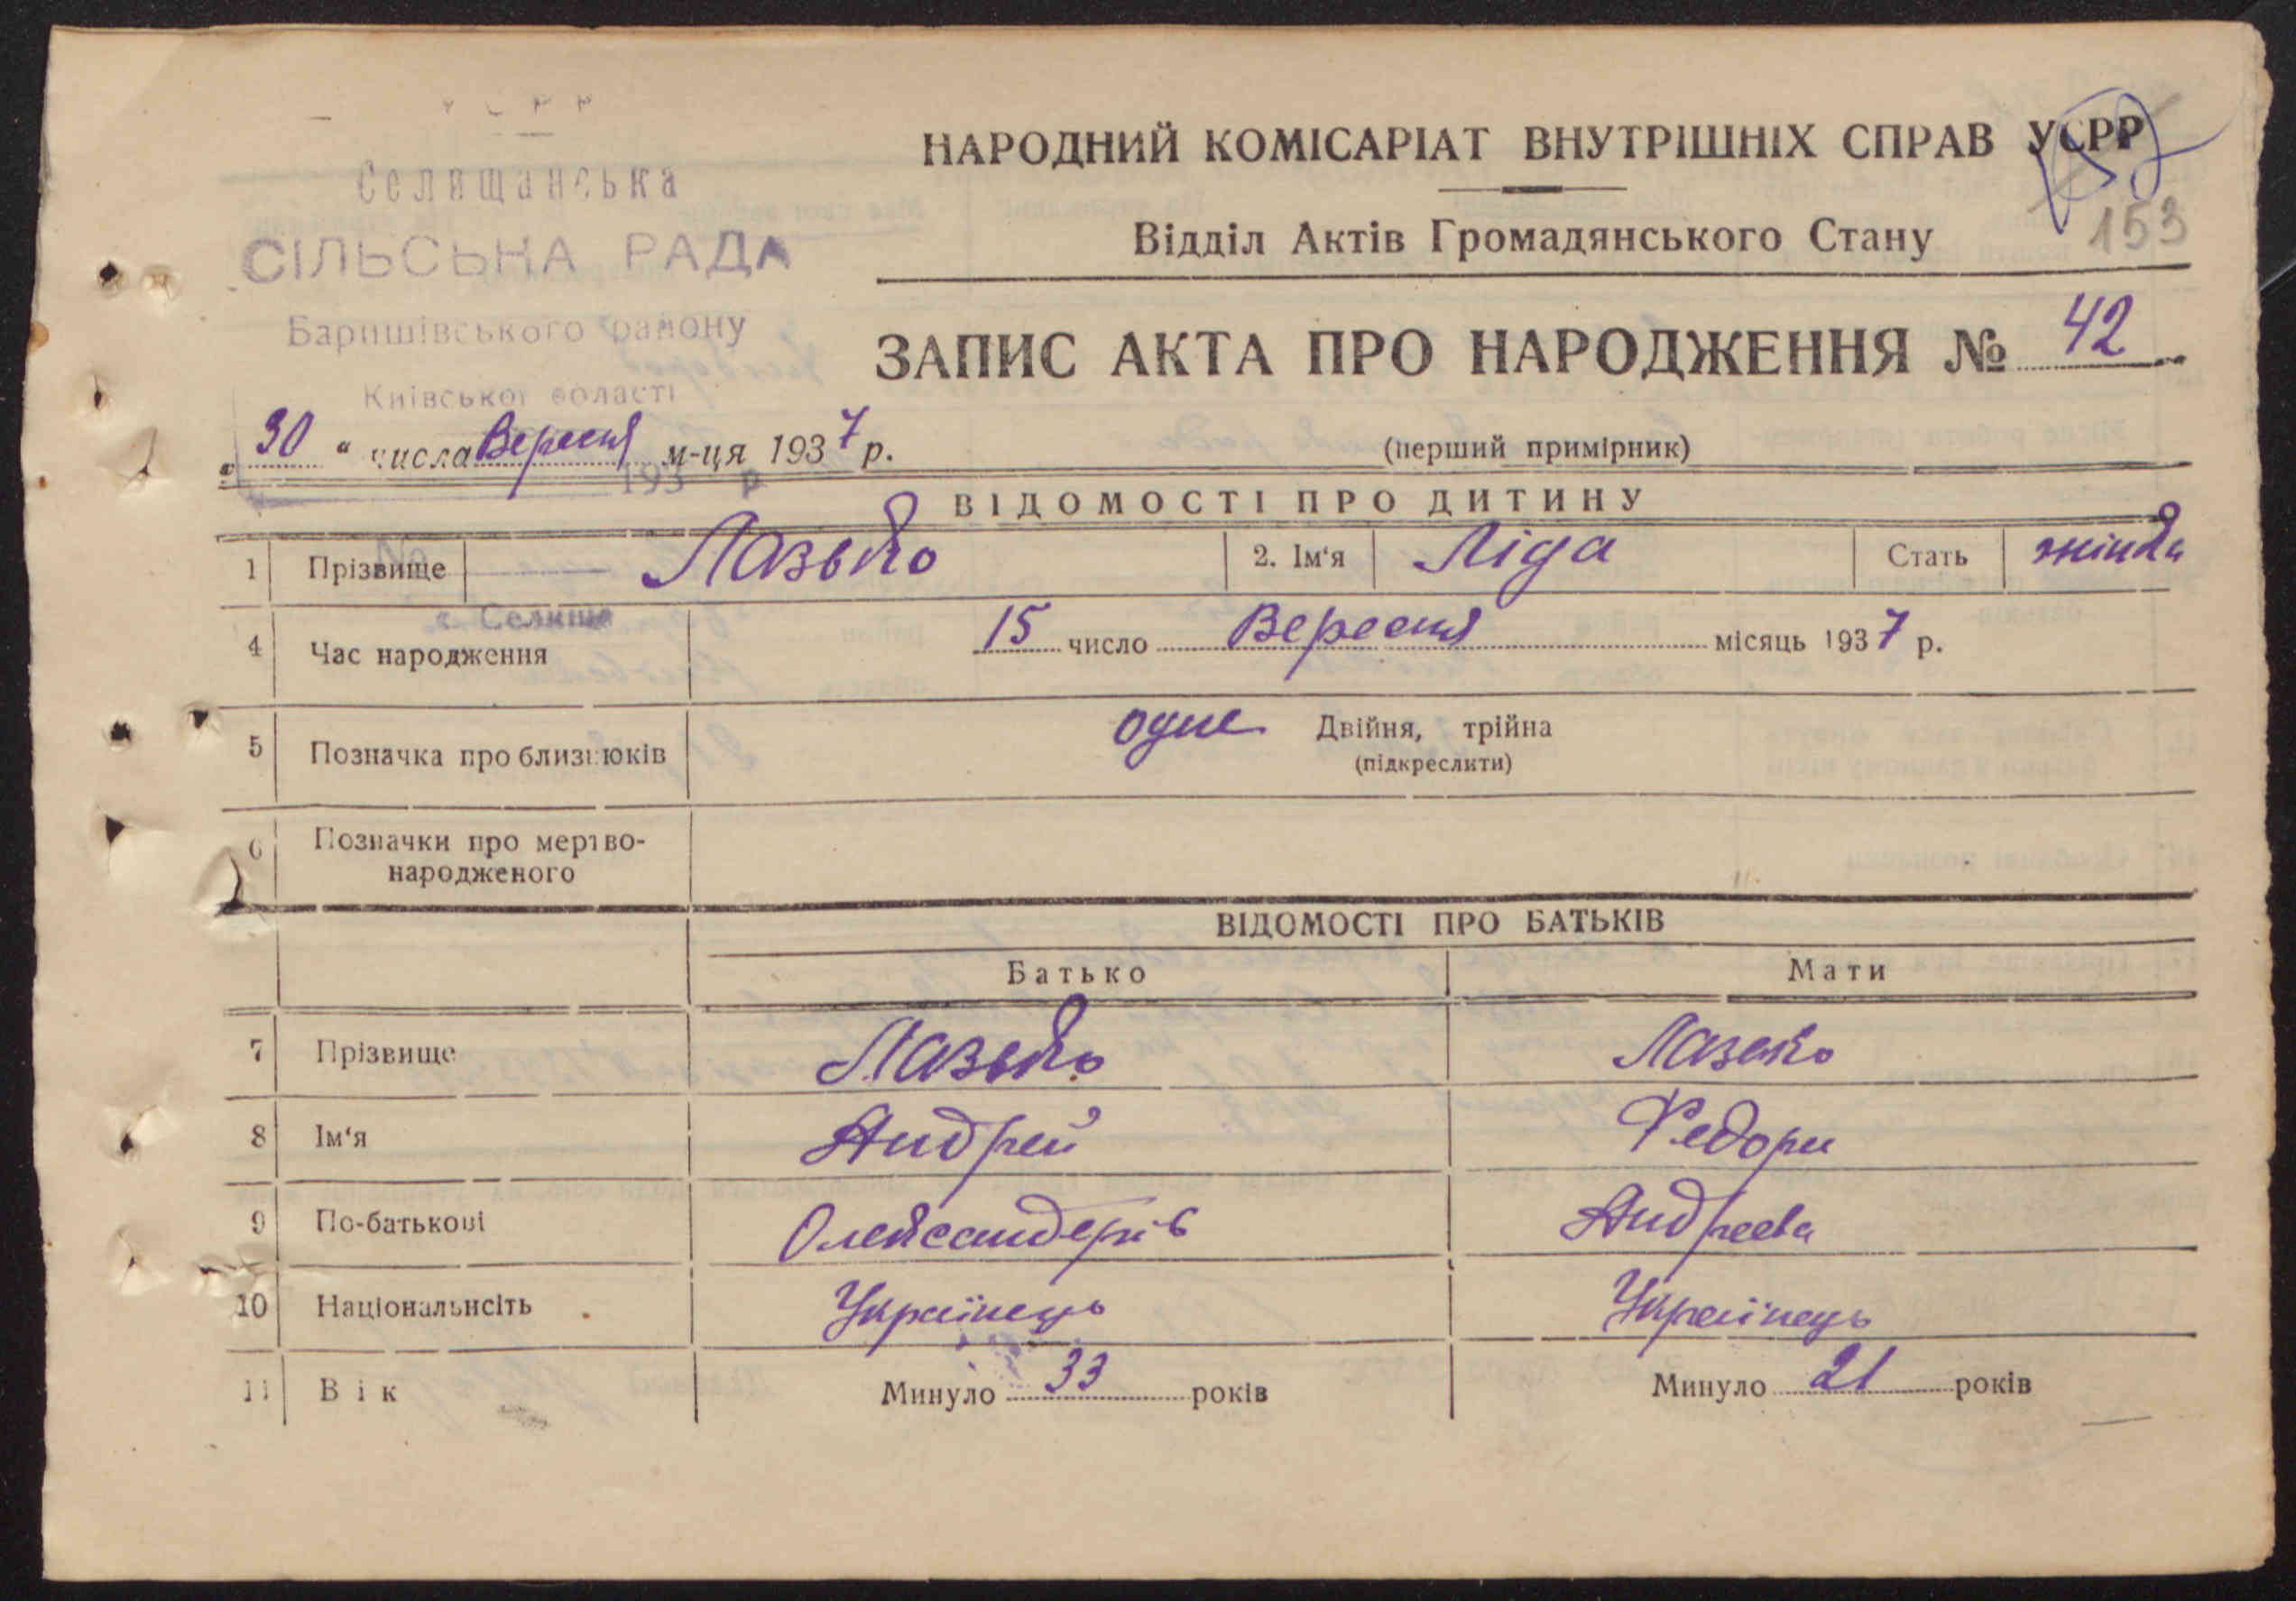 УСРР
Селищанська
СІЛЬСЬКА РАДА
Баришівського району
Київської області
193 р
№
с. Селище
НАРОДНИЙ КОМІСАРІАТ ВНУТРІШНІХ СПРАВ УСРР
153
Відділ Актів Громадянського Стану
ЗАПИС АКТА ПРО НАРОДЖЕННЯ № 42
„30“ числа Вересня м-ця 1937 р.
(перший примірник)
ВІДОМОСТІ ПРО ДИТИНУ
1 Прізвище Лазько 2. Ім‘я Ліда Стать жінка
4 Час народження 15 число Вересня місяць 1937 р.
5 Позначка про близнюків одне Двійня, трійна
(підкреслити)
6 Позначки про мертво-
народженого
ВІДОМОСТІ ПРО БАТЬКІВ
Батько Мати
7 Прізвище Лазько Лазько
8 Ім‘я Андрей Федори
9 По-батькові Олександерів Андреева
10 Національнсіть Українець Українець
11 Вік Минуло 33 років Минуло 21 років